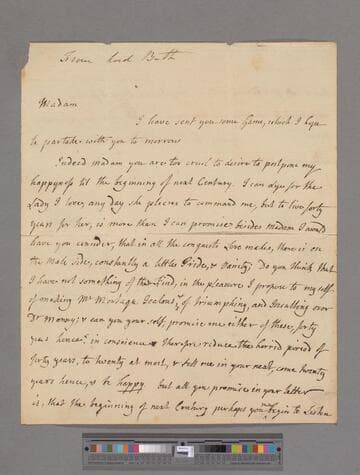 From Lord Bath
Madam
I have sent you some Game, which I hope
to partake with you to morrow
Indeed madam you are too cruel to desire to postpone my
happyness til the beginning of next Century. I can dye for the
Lady I love, any day she pleases to command me, but to live forty
years for her, is more than I can promise besides Madam I would
have you consider, that in all the conquests Love makes, there is on
the Male side, constantly a little Pride, & Vanity; Do you think that
I have not something of that kind, in the pleasure I propose to my self
of making Mr Montagu Jealous? of triumphing, and Insulting over
Dr Monsy; & can you your self, promise me either of these, forty
years hence? in conscience therefore reduce the horrid period of
forty years, to twenty at most, & tell me in your next, come twenty
years hence, & be happy. but all you promise in your letter
is, that the beginning of next Century perhaps you may begin to Listen